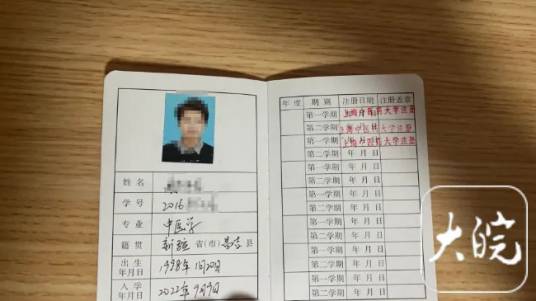 年度 期别 注册日期 注册盖章
第一学期 上海中医药大学注册
第二学期 上海中医药大学注册
第一学期 上海中医药大学注册
第二学期 年 月 日
第一学期 年 月 日
第二学期 年 月 日
第一学期 年 月 日
第二学期 年 月 日
第一学期 年 月 日
第二学期 年 月 日
第一学期 年 月 日
第二学期 年 月 日
姓名
学号 2016
专业 中医学
籍贯 新疆 省(市) 县
出生年月日 1998年1月20日
入学年月日 2022年9月9日
大皖